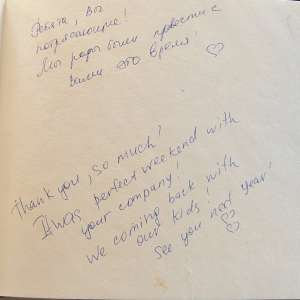 Ребята, Вы
потрясающие!
Мы рады были провести с
вами это время!
Thank you, so much!
It was perfect weekend with
your company!
We coming back with
our kids!
See you next year!